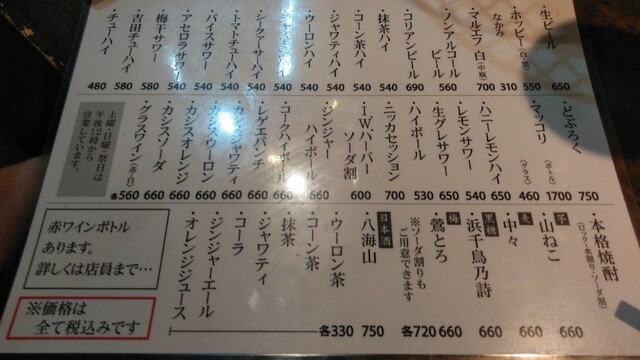 ・生ビール 650
・ホッピー(白・黒) 550
なかみ 310
・マルエフ 白(中瓶) 700
・ノンアルコールビール 560
・コリアンビール 690
・抹茶ハイ 540
・コーン茶ハイ 540
・ジャワティハイ 540
・ウーロンハイ 540
・シークァーサーハイ 540
・トマトチューハイ 540
・バイスサワー 540
・アセロラサワー 540
・梅干サワー 580
・吉田チューハイ 580
・チューハイ 480
・どぶろく 750
・マッコリ (ボトル) 1700
(グラス) 460
・ハニーレモンハイ 650
・レモンサワー 540
・生グレサワー 650
・ハイボール 530
・ニッカセッション 700
・I.Wハーパーソーダ割 600
・ジンジャーハイボール 660
・コークハイボール 660
・レゲエパンチ 660
・カシスジャワティ 660
・カシスウーロン 660
・カシスオレンジ 660
・カシスソーダ 660
・グラスワイン(赤・白) 各560
土曜・日曜・祭日は
午後12時から
営業しています。
・本格焼酎
(ロック・水割り・ソーダ割)
芋 ・山ねこ 660
麦 ・中々 660
黒糖 ・浜千鳥乃詩 660
梅 ・鶯とろ 660
※ソーダ割りも
ご用意できます 各720
日本酒 ・八海山 750
・ウーロン茶
・コーン茶
・抹茶
・ジャワティ
・コーラ
・ジンジャーエール
・オレンジジュース
各330
赤ワインボトル
あります。
詳しくは店員まで…
※価格は
全て税込みです